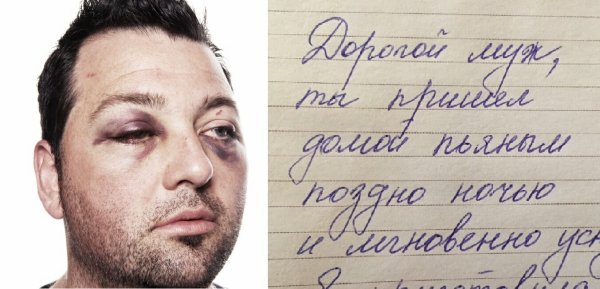 Дорогой муж,
ты пришел
домой пьяным
поздно ночью
и мгновенно усн